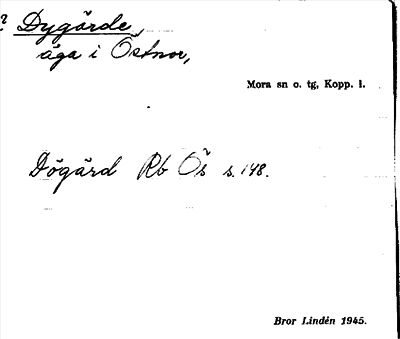 ? Dygärde,
äga i Östnor,
Mora sn o. tg, Kopp. l.
Dögärd Rb Ös s. 148.
Bror Lindén 1945.